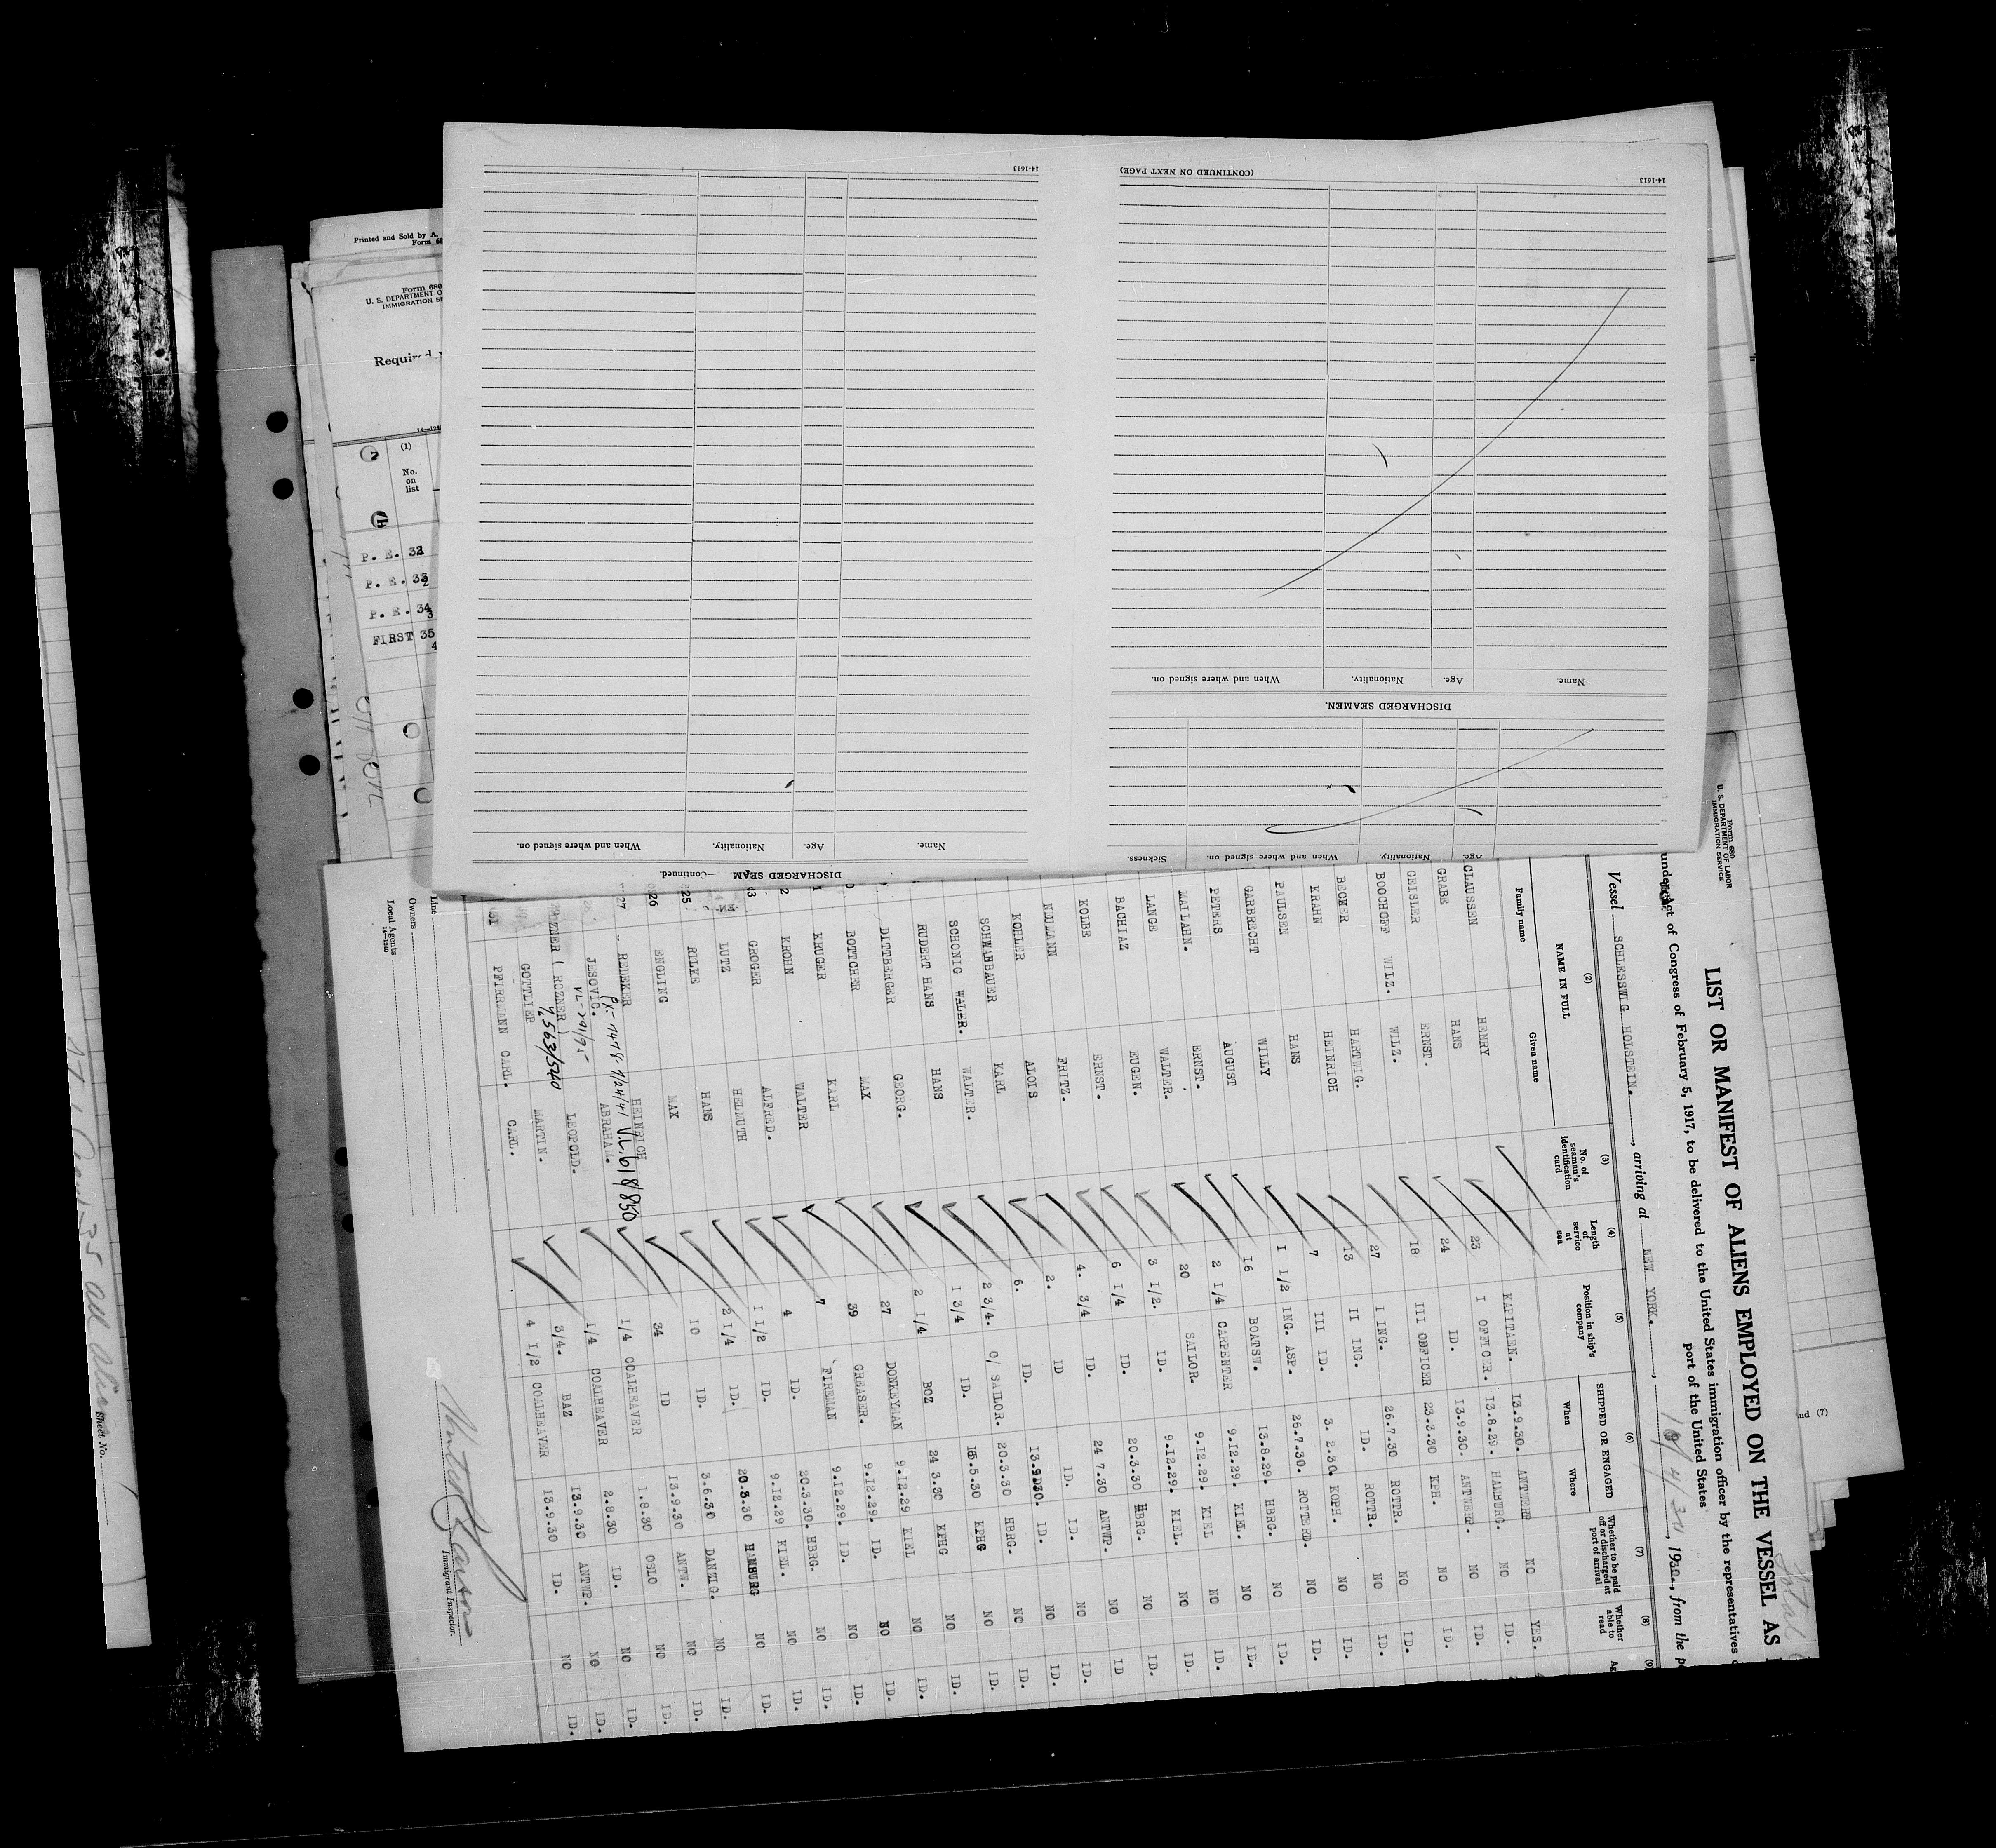 14-1613
(CONTINUED ON NEXT PAGE)
14-1613
Name.
Age.
Nationality.
When and where signed on.
DISCHARGED SEAMEN.
Age.
Nationality.
When and where signed on.
Sickness.
Name.
Age.
Nationality.
When and where signed on.
DISCHARGED SEAM —Continued.
Printed and Sold by A.
Form 680
U. S. DEPARTMENT O
IMMIGRATION SE
(1)
No.
on
list
P. E.
P. E.
P. E.
FIRST 35
4
Form 680
U. S. DEPARTMENT OF LABOR
IMMIGRATION SERVICE
LIST OR MANIFEST OF ALIENS EMPLOYED ON THE VESSEL AS
under Act of Congress of February 5, 1917, to be delivered to the United States immigration officer by the representatives
port of the United States
Vessel SCHLESSWIG HOLSTEIN., arriving at NEW YORK., 193 , from the p
(2) (3) (4) (5) (6) (7) (8) (9)
NAME IN FULL
Family name Given name
No. of seaman's identification card
Length of service at sea
Position in ship's company
SHIPPED OR ENGAGED
When Where
Whether to be paid off or discharged at port of arrival
Whether able to read
KAPITAEN. 13.9.30. ANTWERP NO YES.
CLAUSSEN HENRY 23 I OFFICER. 13.8.29. HAMBURG. NO ID.
GRABE HANS 24 ID. 13.9.30. ANTWERP. NO ID.
GEISLER ERNST. 18 III OFFICER 23.3.30 KPH. NO ID.
BOOCHOFF WILZ. WILZ. 27 I ING. 26.7.30 ROTTR. NO ID.
BECKER HARTWIG. 13 II ING. ID. ROTTR. NO ID.
KRAHN HEINRICH 7 III ID. 3. 2.30. KOPH. NO ID.
PAULSEN HANS 1 1/2 ING. ASP. 26.7.30. ROTTERD. NO ID.
GARBRECHT WILLY 16 BOATSW. 13.8.29. HBRG. NO ID.
PETERS AUGUST 2 1/4 CARPENTER 9.12.29. KIEL. NO ID.
MAILAHN. ERNST. 20 SAILOR. 9.12.29. KIEL NO ID.
LANGE WALTER. 3 1/2. ID. 9.12.29. KIEL. NO ID.
BACHIAZ EUGEN. 6 1/4 ID. 20.3.30 HBRG. NO ID.
KOLBE ERNST. 4. 3/4 ID. 24 7.30 ANTWP. NO ID
NEUMANN FRITZ. 2. ID ID. ID. NO ID.
KOHLER ALOIS 6. ID. 13.9.30. ID. NO ID.
SCHWABBAUER KARL 2 3/4. O/ SAILOR. 20.3.30 HBRG. NO ID.
SCHONIG WALER. WALTER. 1 3/4 ID. 15.5.30 KPHG NO ID.
RUDERT HANS HANS 2 1/4 BOZ 24 3.30 KPHG NO ID.
DITTBERGER GEORG. 27 DONKEYMAN 9.12.29 KIEL NO ID.
BOTTCHER MAX 39 GREASER. 9.12.29. ID. NO ID.
KRUGER KARL 7 FIREMAN 9.12.29. ID. NO ID.
KROHN WALTER 4 ID. 20.3.30. HBRG. NO ID.
GROGER ALFRED. 1 1/2 ID. 9.12.29 KIEL. NO ID.
LUTZ HELMUTH 2 1/4 ID. 20.3.30 HAMBURG NO ID.
RILKE HANS 10 ID. 3.6.30 DANZIG. NO ID.
26 ENGLING MAX 34 ID 13.9.30 ANTW. NO ID.
27 REDEKER HEINRICH 1/4 COALHEAVER 1.8.30 OSLO NO ID.
JESOVIC. ABRAHAM. 1/4 COALHEAVER 2.8.30 ID. NO ID.
ROZNER ( ROZNER ) LEOPOLD. 3/4. BAZ 13.9.30 ANTWP. NO ID.
GOTTLIEP MARTIN.
PFIRMANN CARL. CARL. 4 1/2 COALHEAVER 13.9.30 ID. NO ID.
Line
Owners
Local Agents
Immigrant Inspector.
Sheet No.